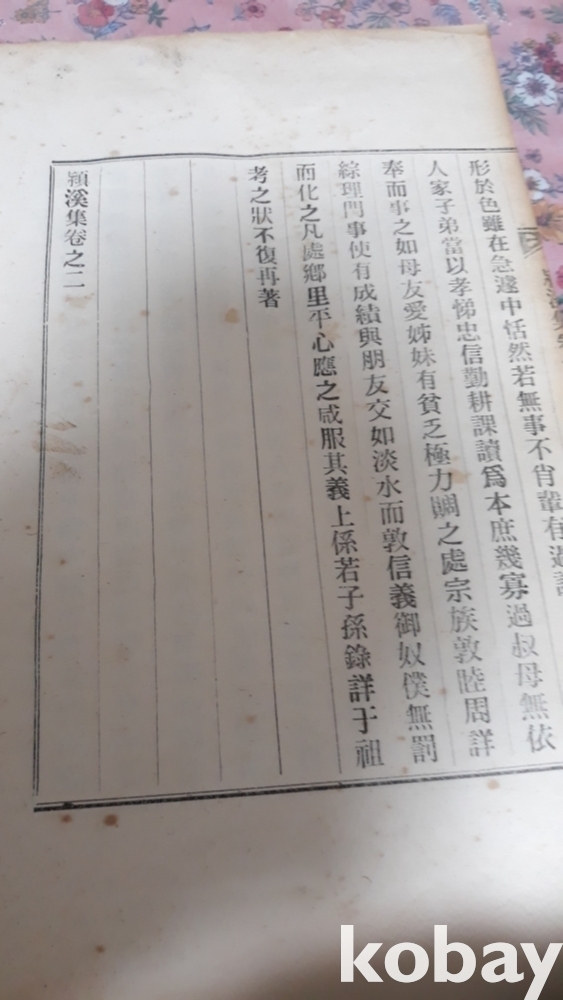 形於色雖在急遽中恬然若無事不肖輩有過
人家子弟當以孝悌忠信勤耕課讀爲本庶幾寡過叔母無依
奉而事之如母友愛姊妹有貧乏極力賙之處宗族敦睦周詳
綜理門事使有成績與朋友交如淡水而敦信義御奴僕無罰
而化之凡處鄉里平心應之咸服其義上係若子孫錄詳于祖
考之狀不復再著
穎溪集卷之二
kobay